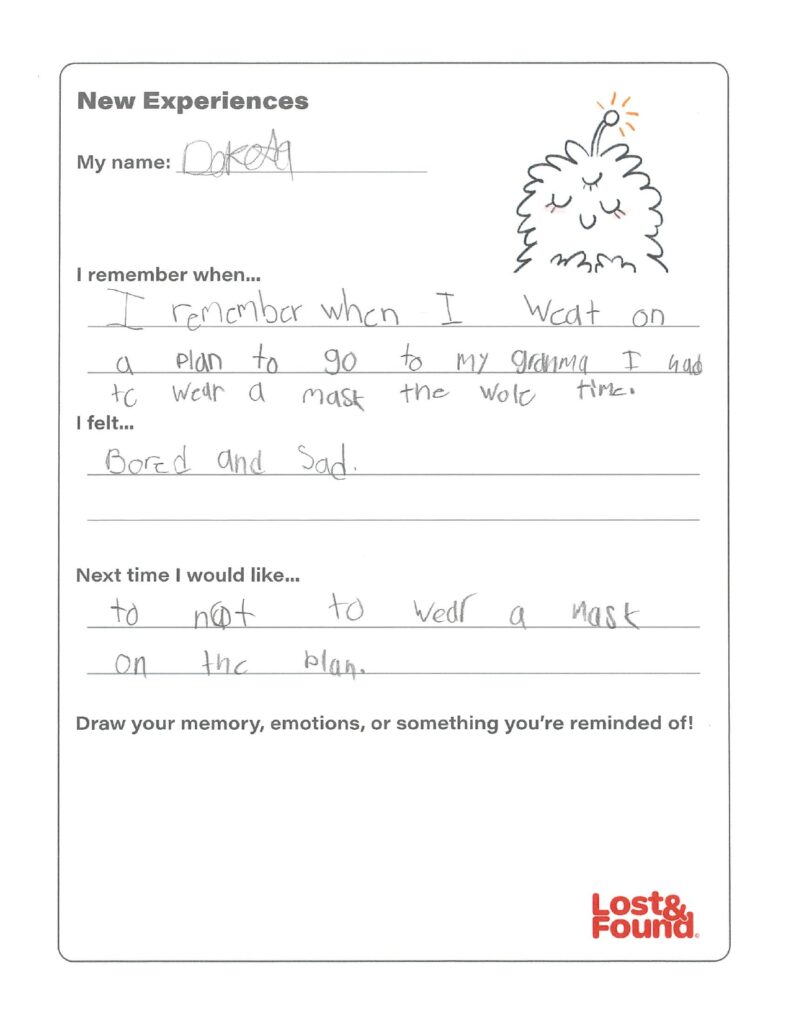 New Experiences
My name: Dakota
I remember when...
I remember when I weat on
a plan to go to my granma I had
to wear a mask the wole time.
I felt...
Bored and sad.
Next time I would like...
to not to wear a mask
on the plan.
Draw your memory, emotions, or something you're reminded of!
Lost&
Found